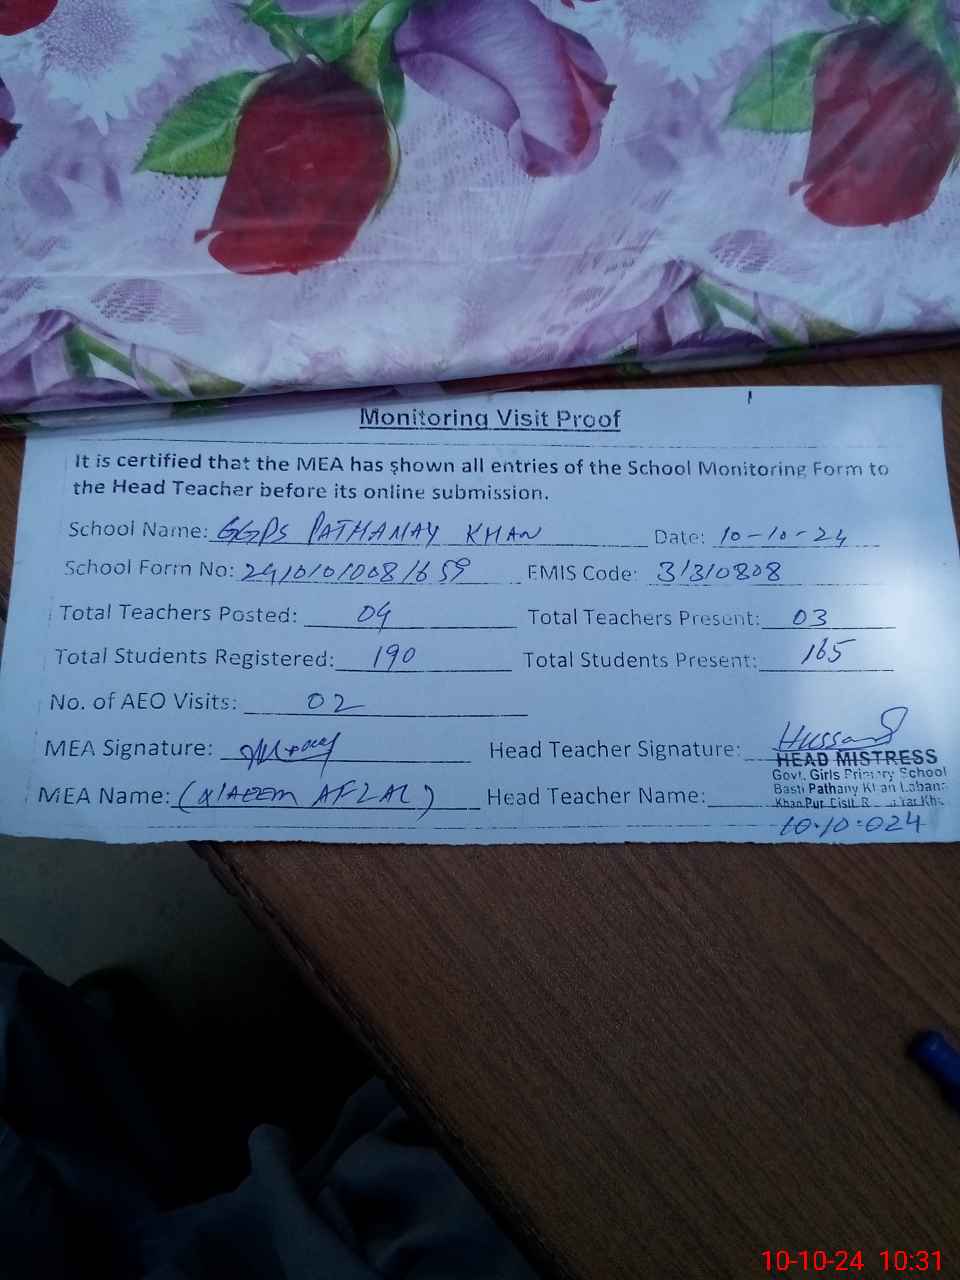 Monitoring Visit Proof
It is certified that the MEA has shown all entries of the School Monitoring Form to
the Head Teacher before its online submission.
School Name: GGPS PATHANAY KHAN Date: 10-10-24
School Form No: 24101010081659 EMIS Code: 31310808
Total Teachers Posted: 04 Total Teachers Present: 03
Total Students Registered: 190 Total Students Present: 165
No. of AEO Visits: 02
MEA Signature: Head Teacher Signature:
HEAD MISTRESS
Govt. Girls Primary School
Basti Pathany Khan Labana
Khan Pur Distt. R Yar Khan
MEA Name: (NAEEM AFZAL) Head Teacher Name:
10.10.024
10-10-24 10:31